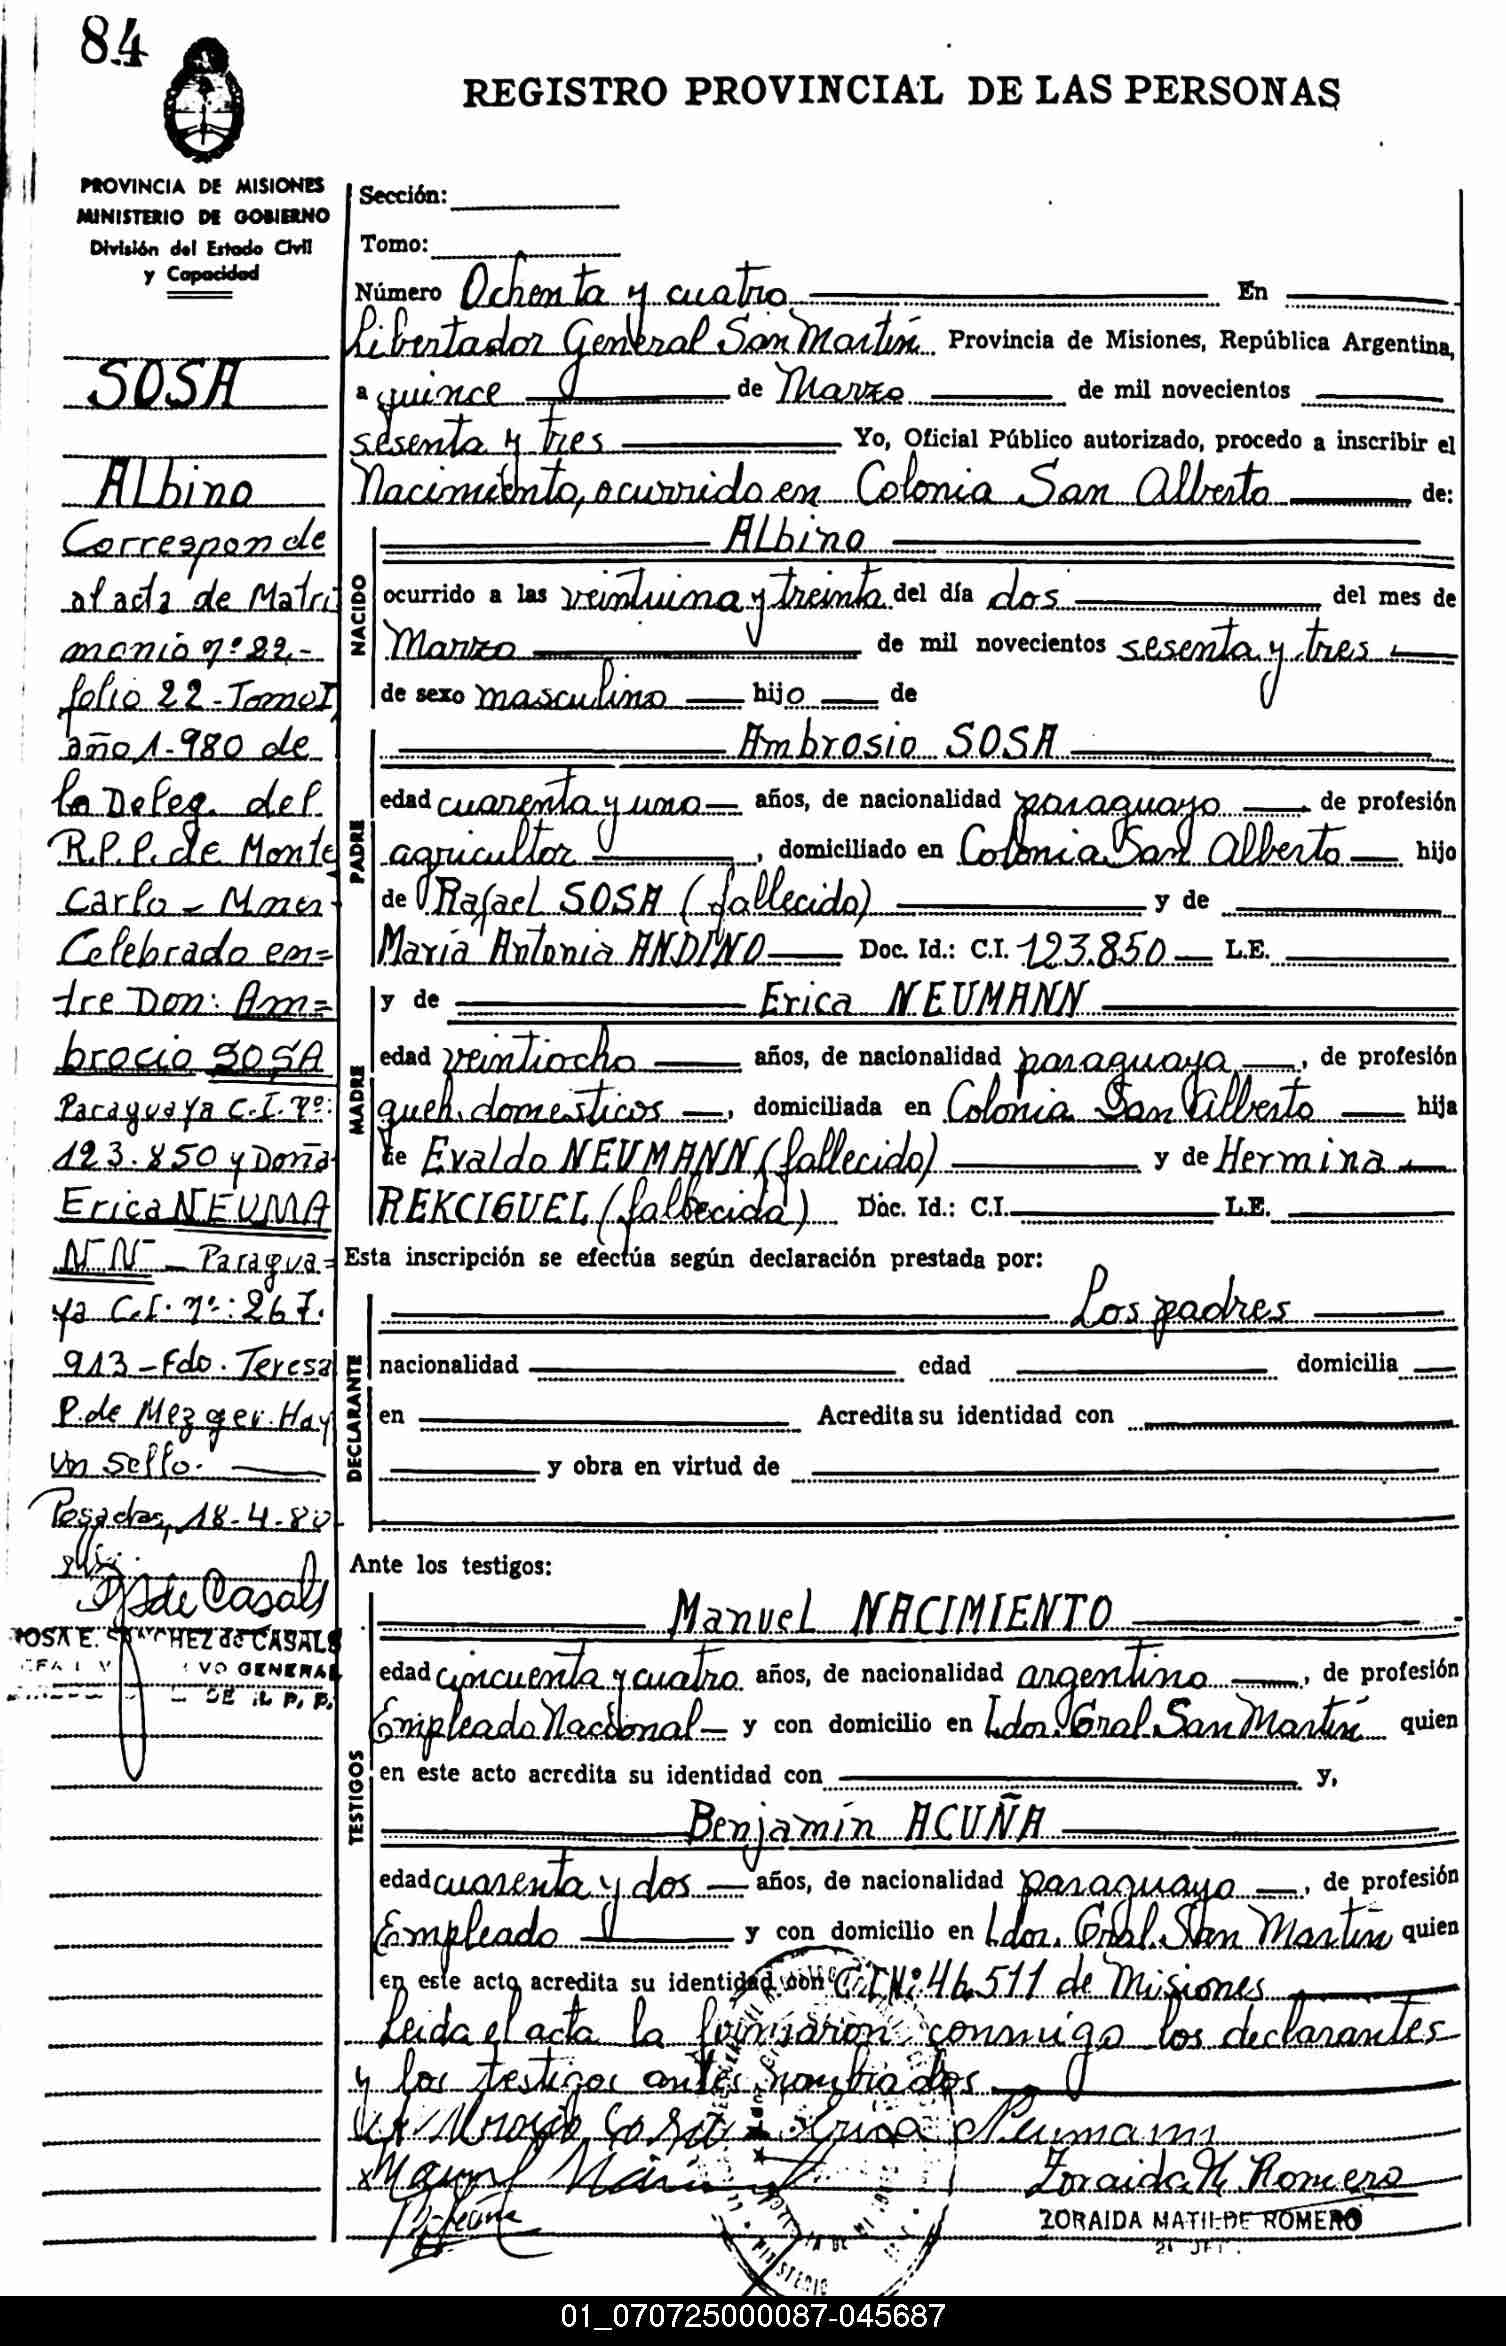 84
REGISTRO PROVINCIAL DE LAS PERSONAS
PROVINCIA DE MISIONES
MINISTERIO DE GOBIERNO
División del Estado Civil
y Capacidad
SOSA
Albino
Corresponde
al acta de Matri
monio nº 22.-
folio 22-Tomo I
año 1.980 de
la Deleg. del
R.P.P. de Monte
Carlo - Mnes
Celebrado en=
tre Don: Am=
brocio SOSA
Paraguaya C.I. nº:
123.850 y Doña
Erica NEUMA
NN - Paragua=
ya C.I. nº: 267.
913 - Fdo. Teresa
P. de Mezger. Hay
un sello.
Posadas, 18-4-80
de Casals
ROSA E. SANCHEZ de CASALS
GENERAL
DE R. P. P.
Sección:
Tomo:
Número Ochenta y cuatro En
Libertador General San Martín Provincia de Misiones, República Argentina,
a quince de Marzo de mil novecientos
sesenta y tres Yo, Oficial Público autorizado, procedo a inscribir el
Nacimiento, ocurrido en Colonia San Alberto de:
NACIDO
Albino
ocurrido a las veintiuna y treinta del día dos del mes de
Marzo de mil novecientos sesenta y tres
de sexo masculino hijo de
PADRE
Ambrosio SOSA
edad cuarenta y uno años, de nacionalidad paraguayo de profesión
agricultor, domiciliado en Colonia San Alberto hijo
de Rafael SOSA (fallecido) y de
María Antonia ANDINO Doc. Id.: C.I. 123.850 L.E.
MADRE
y de Erica NEUMANN
edad veintiocho años, de nacionalidad paraguaya, de profesión
queh. domesticos, domiciliada en Colonia San Alberto hija
de Evaldo NEUMANN (fallecido) y de Hermina
REKCIGUEL (fallecida) Doc. Id.: C.I. L.E.
Esta inscripción se efectúa según declaración prestada por:
DECLARANTE
Los padres
nacionalidad edad domicilia
en Acredita su identidad con
y obra en virtud de
Ante los testigos:
TESTIGOS
Manuel NACIMIENTO
edad cincuenta y cuatro años, de nacionalidad argentino, de profesión
Empleado Nacional y con domicilio en Ldor. Gral. San Martín quien
en este acto acredita su identidad con y,
Benjamín ACUÑA
edad cuarenta y dos años, de nacionalidad paraguayo, de profesión
Empleado y con domicilio en Ldor. Gral. San Martín quien
en este acto acredita su identidad con C.I.Nº: 46.511 de Misiones
Leida el acta la firmaron conmigo los declarantes
y los testigos antes nombrados
Erica Neumann
Zoraida M. Romero
ZORAIDA MATILDE ROMERO
01_070725000087-045687